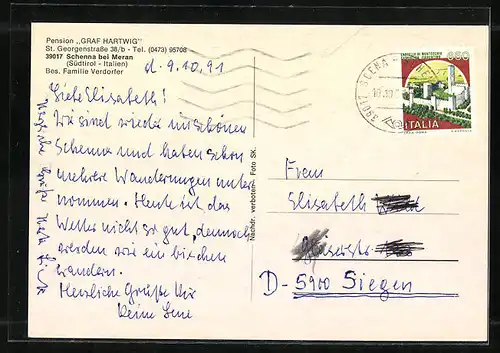 Pension „GRAF HARTWIG"
St. Georgenstraße 38/b - Tel. (0473) 95708
39017 Schenna bei Meran
(Südtirol - Italien)
Bes. Familie Verdorfer
d. 9.10.91
Liebe Elisabeth!
Wir sind wieder im schönen
Schenna und haben schon
mehrere Wanderungen unter
nommen. Heute ist das
Wetter nicht so gut, dennoch
werden wir ein bischen
wandern.
Herzliche Grüße
Herzliche Grüße
Nachdr. verboten. Foto SK.
CASTELLO DI MONTECCHIO
650
ITALIA
39017 SCENA
Elisabeth
D-5900 Siegen